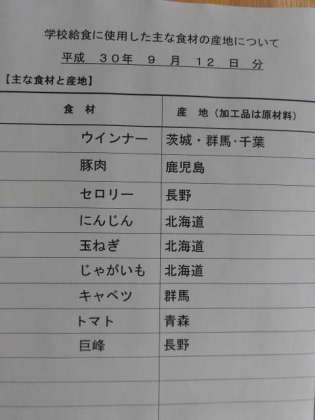 学校給食に使用した主な食材の産地について
平成 30年 9 月 12 日 分
【主な食材と産地】
食 材 産 地（加工品は原材料）
ウインナー 茨城・群馬・千葉
豚肉 鹿児島
セロリー 長野
にんじん 北海道
玉ねぎ 北海道
じゃがいも 北海道
キャベツ 群馬
トマト 青森
巨峰 長野